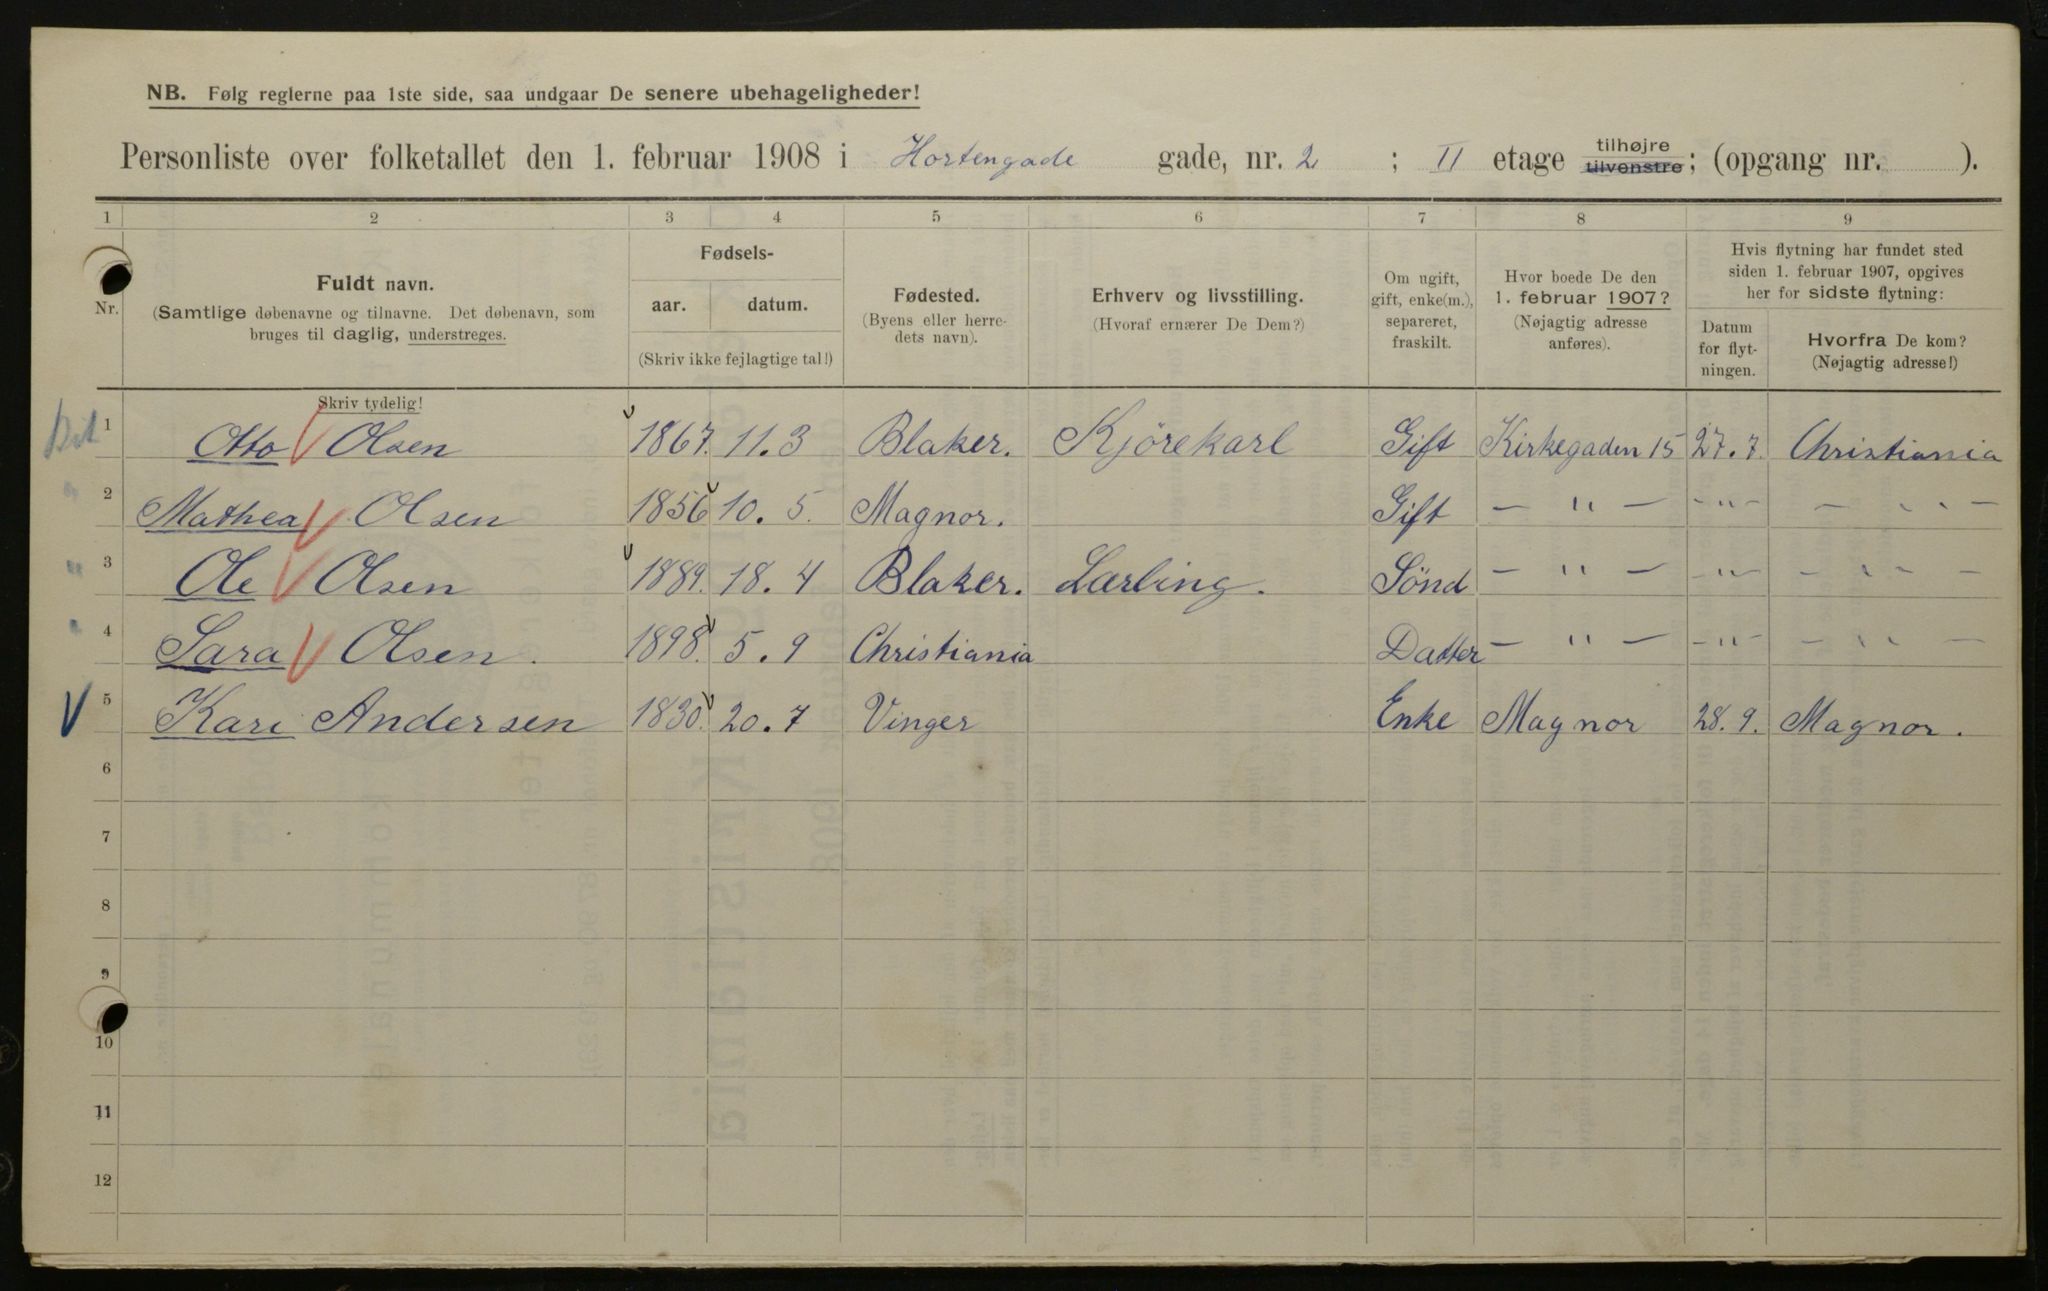 NB. Følg reglerne paa 1ste side, saa undgaar De senere ubehageligheder!
Personliste over folketallet den 1. februar 1908 i Hortengade gade, nr. 2 ; II etage tilhøjre tilvenstre; (opgang nr. ).
1 2 3 4 5 6 7 8 9
Nr.
Fuldt navn.
(Samtlige døbenavne og tilnavne. Det døbenavn, som
bruges til daglig, understreges.
Fødsels-
aar. datum.
(Skriv ikke fejlagtige tal!)
Fødested.
(Byens eller herre-
dets navn).
Erhverv og livsstilling.
(Hvoraf ernærer De Dem?)
Om ugift,
gift, enke(m.),
separeret,
fraskilt.
Hvor boede De den
1. februar 1907?
(Nøjagtig adresse
anføres).
Hvis flytning har fundet sted
siden 1. februar 1907, opgives
her for sidste flytning:
Datum
for flyt-
ningen.
Hvorfra De kom?
(Nøjagtig adresse!)
Skriv tydelig!
1 Otto Olsen 1867. 11.3 Blaker. Kjörekarl Gift Kirkegaden 15 27.7. Christiania
2 Mathea Olsen 1856 10. 5. Magnor. Gift — " — -"- — " —
3 Ole Olsen 1889. 18. 4 Blaker. Lærling. Sönd — " — -"- — " —
4 Sara Olsen. 1898. 5. 9 Christiania Datter — " — -"- — " —
5 Kari Andersen 1830. 20. 7 Vinger Enke Magnor 28. 9. Magnor.
6
7
8
9
10
11
12